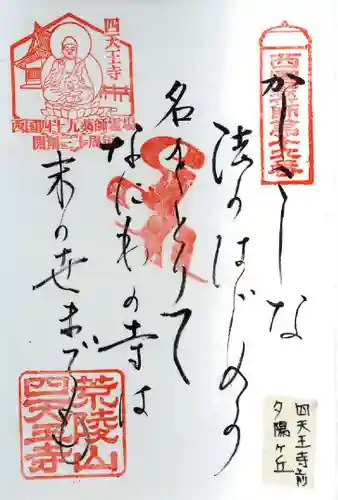 西国薬師第十六番
かしこしな
法のはじめの
名をとりて
なにわの寺は
末の世までも
四天王寺
西国四十九薬師霊場
開創二十周年
荒陵山
四天王寺
四天王寺前
夕陽ヶ丘